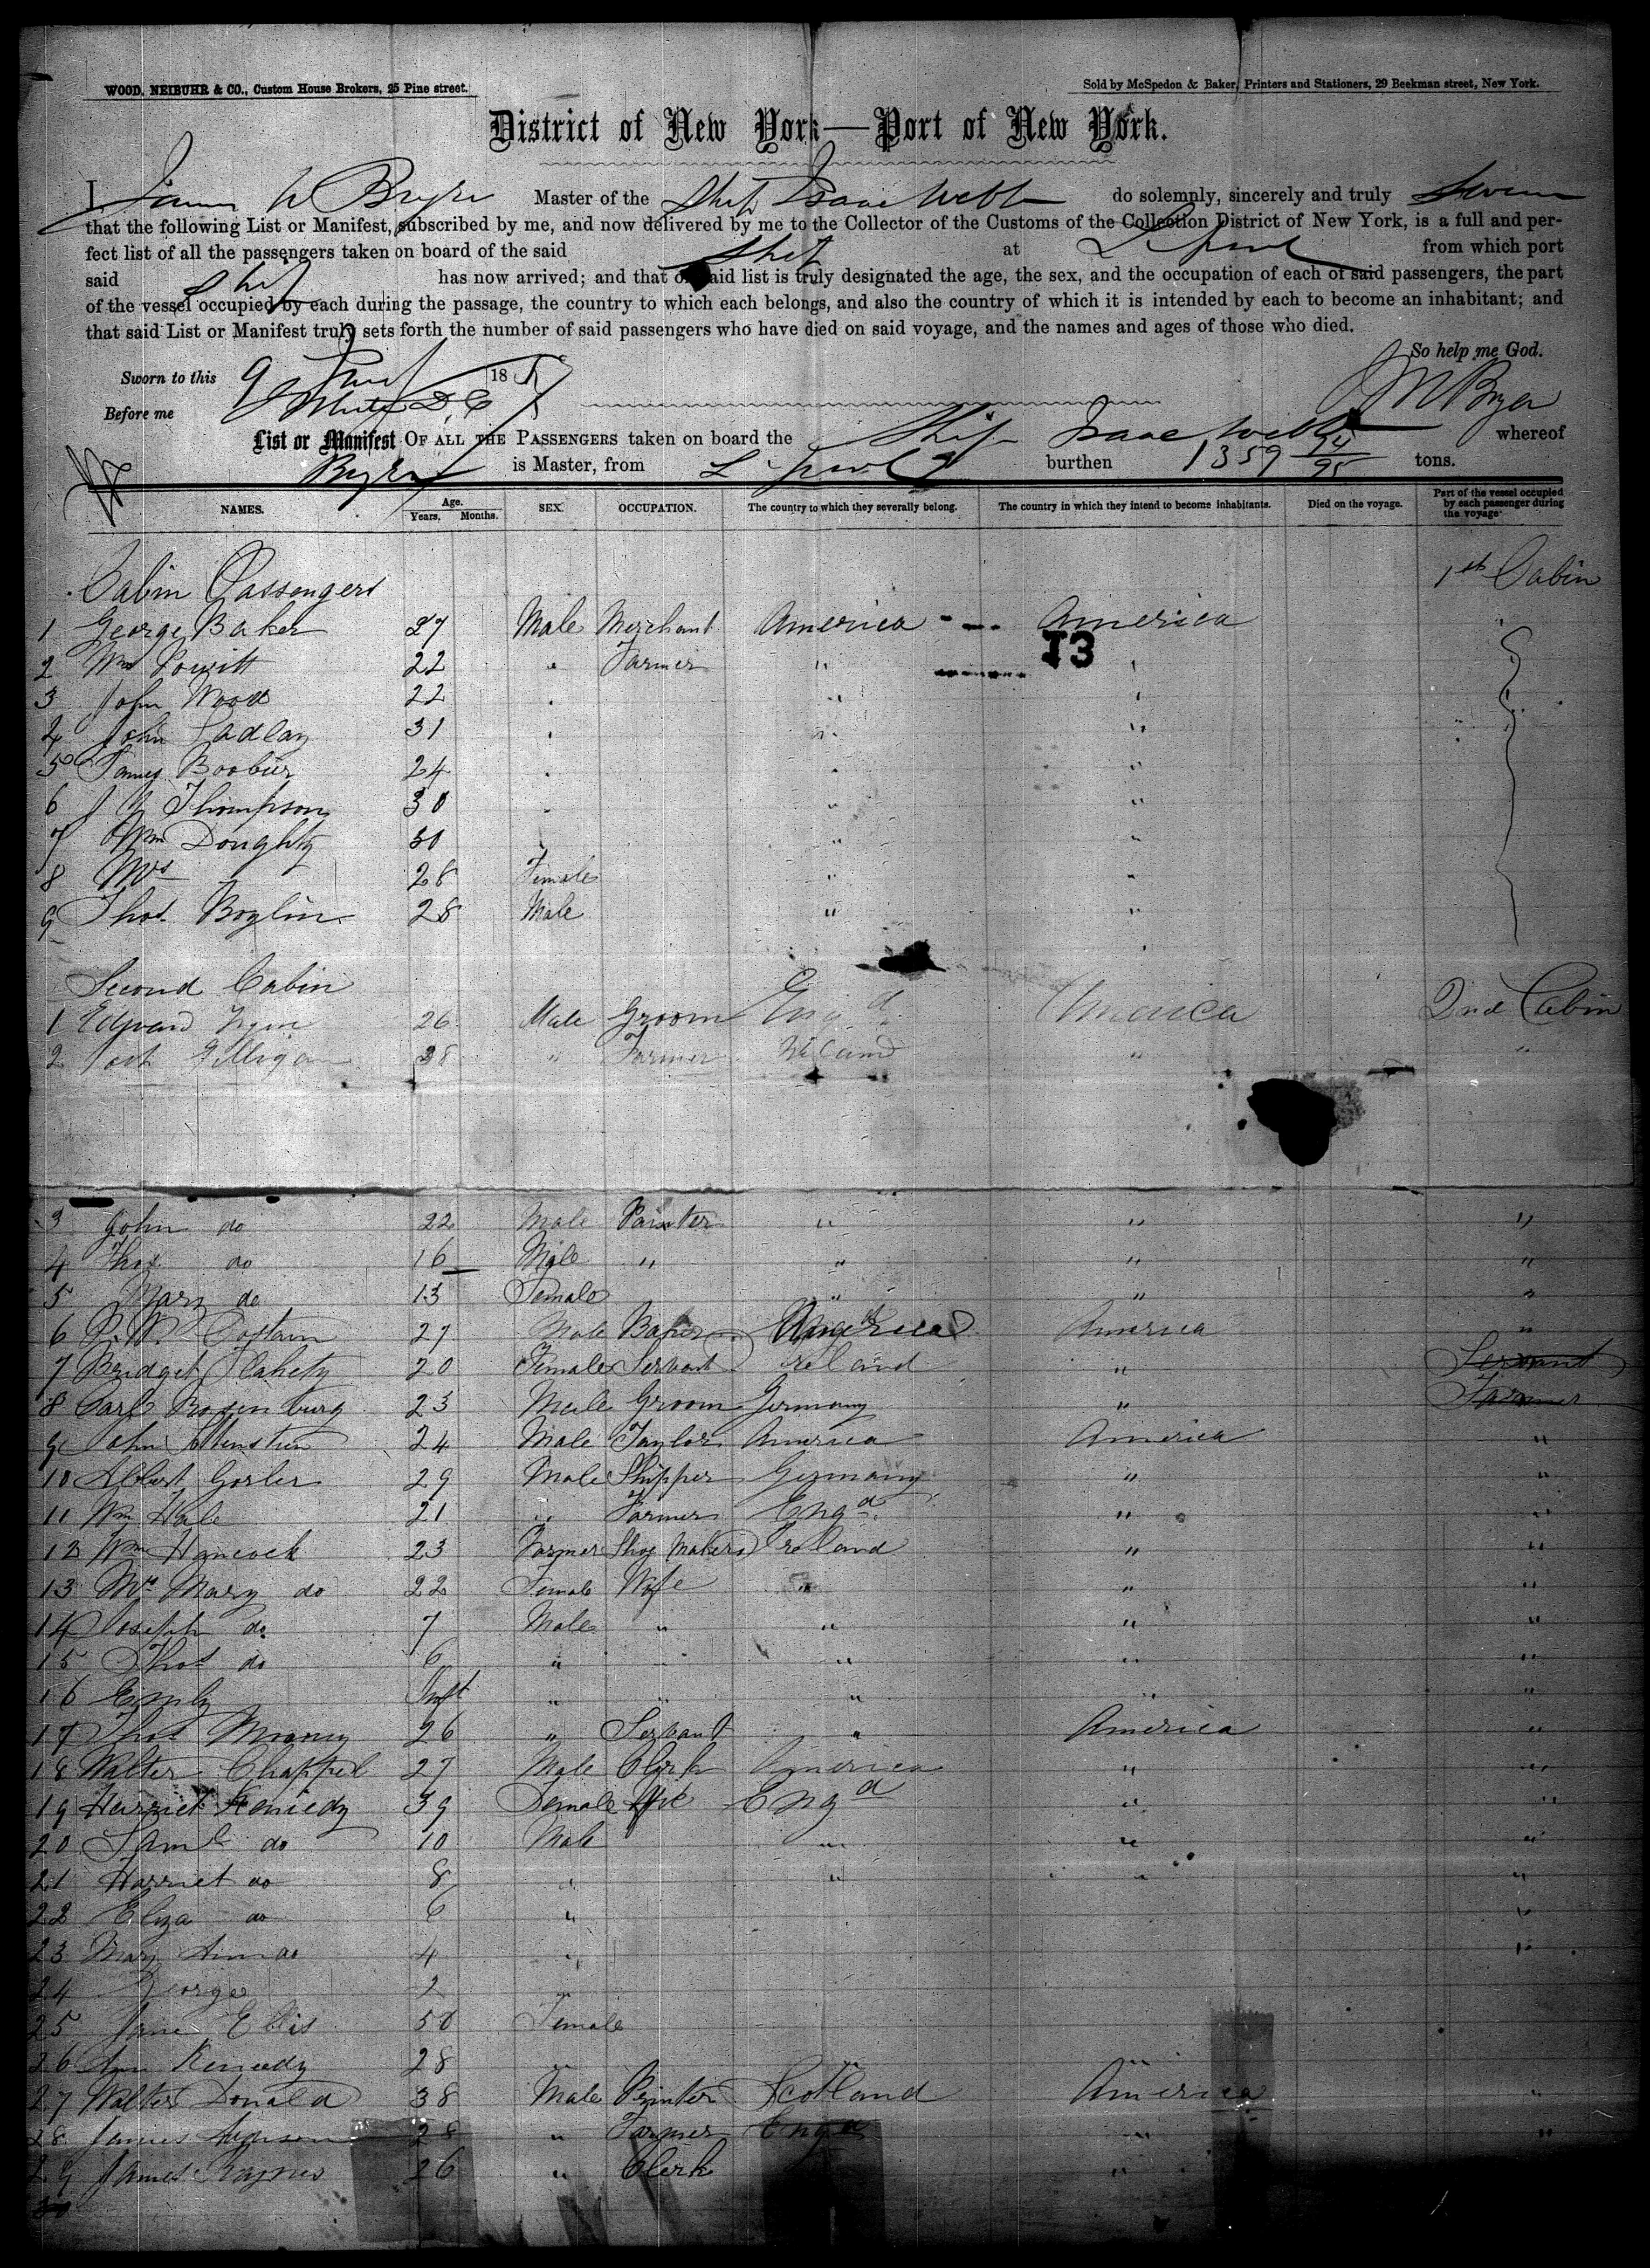 WOOD, NEIBUHR & CO., Custom House Brokers, 25 Pine street.
Sold by McSpedon & Baker, Printers and Stationers, 29 Beekman street, New York.
District of New York—Port of New York.
I, James W Bryer Master of the Ship Isaac Webb do solemnly, sincerely and truly swear
that the following List or Manifest, subscribed by me, and now delivered by me to the Collector of the Customs of the Collection District of New York, is a full and per-
fect list of all the passengers taken on board of the said Ship at L'pool from which port
said Ship has now arrived; and that on said list is truly designated the age, the sex, and the occupation of each of said passengers, the part
of the vessel occupied by each during the passage, the country to which each belongs, and also the country of which it is intended by each to become an inhabitant; and
that said List or Manifest truly sets forth the number of said passengers who have died on said voyage, and the names and ages of those who died.
So help me God.
Sworn to this 9 18
Before me
List or Manifest OF ALL THE PASSENGERS taken on board the Ship Isaac Webb whereof
Bryer is Master, from L'pool burthen 1359 94/95 tons.
NAMES. Age. Years. Months. SEX. OCCUPATION. The country to which they severally belong. The country in which they intend to become inhabitants. Died on the voyage. Part of the vessel occupied by each passenger during the voyage
Cabin Passengers 1st Cabin
1 George Baker 27 Male Merchant America America
13
2 Wm 22 " Farmer " "
3 John Wood 22 " " "
4 John Ladlay 31 " " "
5 James Boobier 24 " " "
6 Thompson 30 " " "
7 Wm Doughty 30 " " "
8 Mrs 28 Female " "
9 Thos Boylin 28 Male " "
Second Cabin
1 Edward 26 Male Groom Engd America 2nd Cabin
2 Gilligan 38 " Farmer Ireland " "
3 John do 22 Male Painter " " "
4 Thos do 16 Male " " " "
5 Mary do 13 Female " " "
6 27 Male Baker America America "
7 Bridget Flahety 20 Female Servant Ireland " Servant
8 Carl Rosenburg 23 Male Groom Germany " Farmer
9 John 24 Male Taylor America America "
10 Albert Gosler 29 Male Shipper Germany " "
11 Wm Hale 21 " Farmer Engd " "
12 Wm Hancock 23 Farmer Shoe Maker Ireland " "
13 Mrs Mary do 22 Female Wife " " "
14 Joseph do 7 Male " " " "
15 Thos do 6 " " " " "
16 Emily Inft " " " " "
17 Thos Mooney 26 " Servant " America "
18 Walter Chappel 27 Male Clerk America " "
19 Harriet Keniedy 39 Female Wife Engd " "
20 Saml do 10 Male " " "
21 Harriet do 8 " " " "
22 Eliza do 6 " "
23 Mary Ann do 4 " "
24 George 2 "
25 Jane Ellis 50 Female
26 Ann Kenedy 28 " " "
27 Walter Donald 38 Male Printer Scotland America "
28 James 28 " Farmer Engd " "
29 James Raynes 26 " Clerk "
30